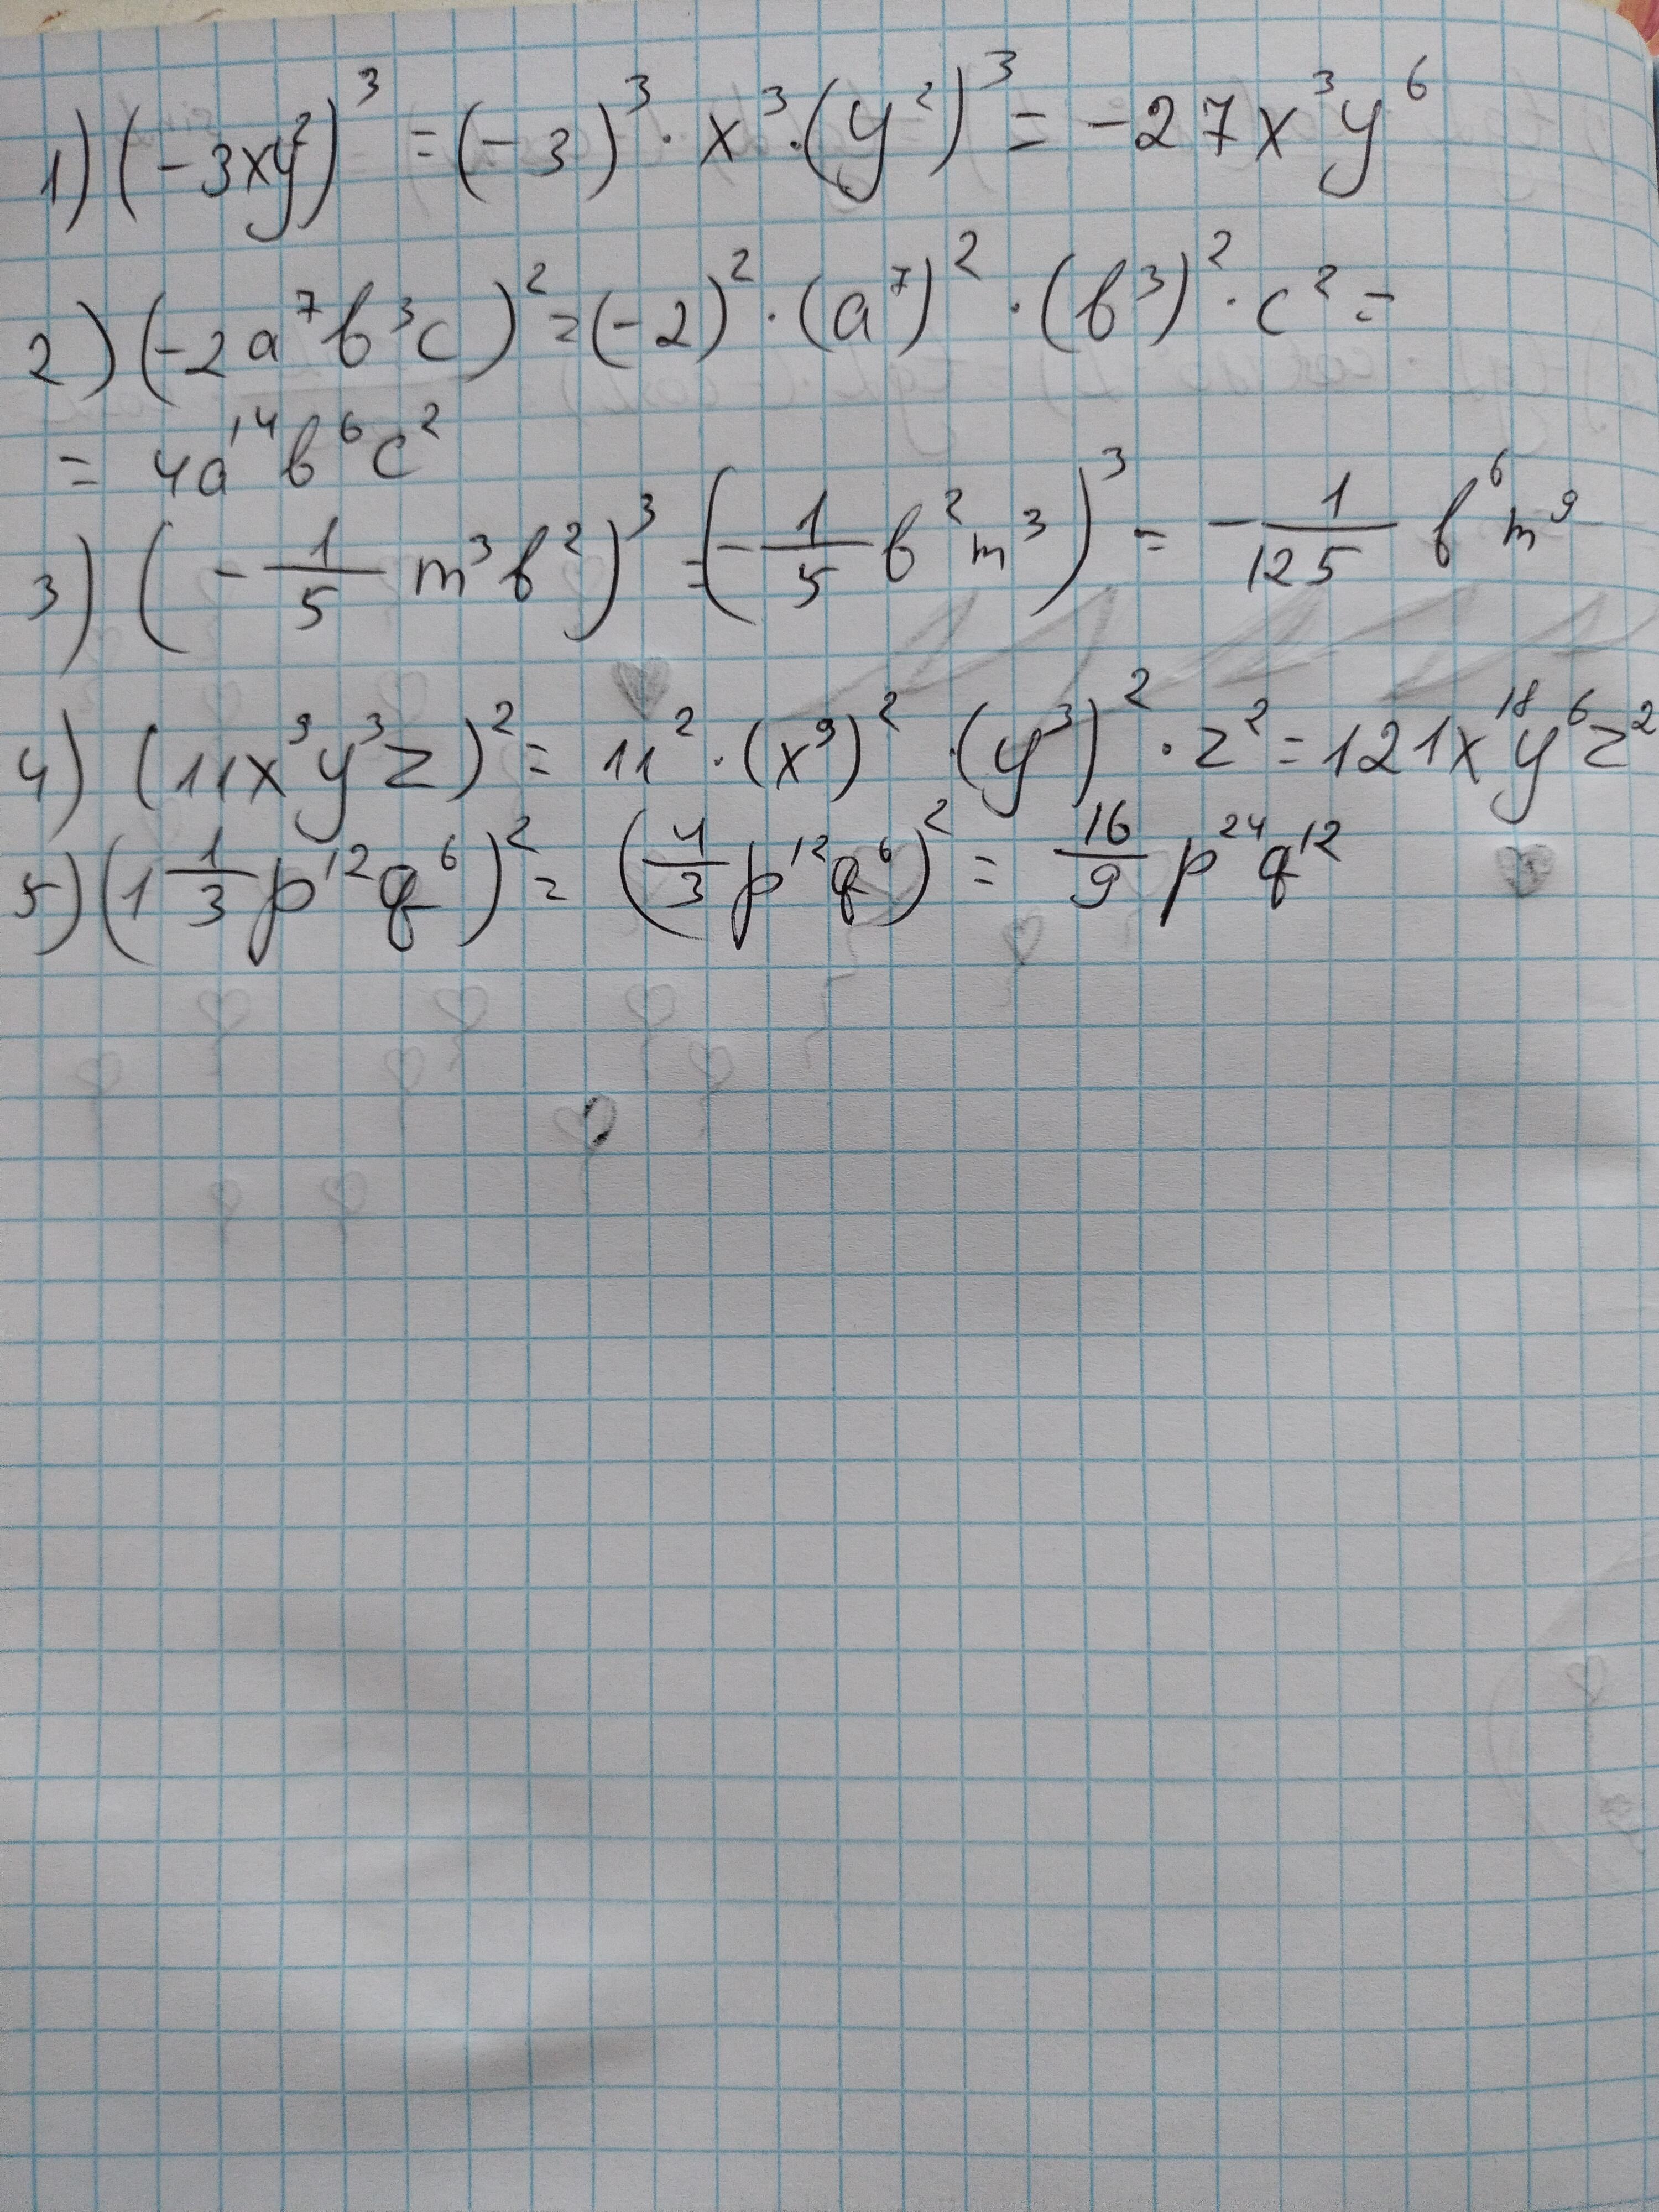 1) (-3xy²)³ = (-3)³ · x³ · (y²)³ = -27x³y⁶
2) (-2a⁷b³c)² = (-2)² · (a⁷)² · (b³)² · c² =
= 4a¹⁴b⁶c²
3) (- 1/5 m³b²)³ = (- 1/5 b²m³)³ = - 1/125 b⁶m⁹
4) (11x⁹y³z)² = 11² · (x⁹)² · (y³)² · z² = 121x¹⁸y⁶z²
5) (1 1/3 p¹²q⁶)² = (4/3 p¹²q⁶)² = 16/9 p²⁴q¹²